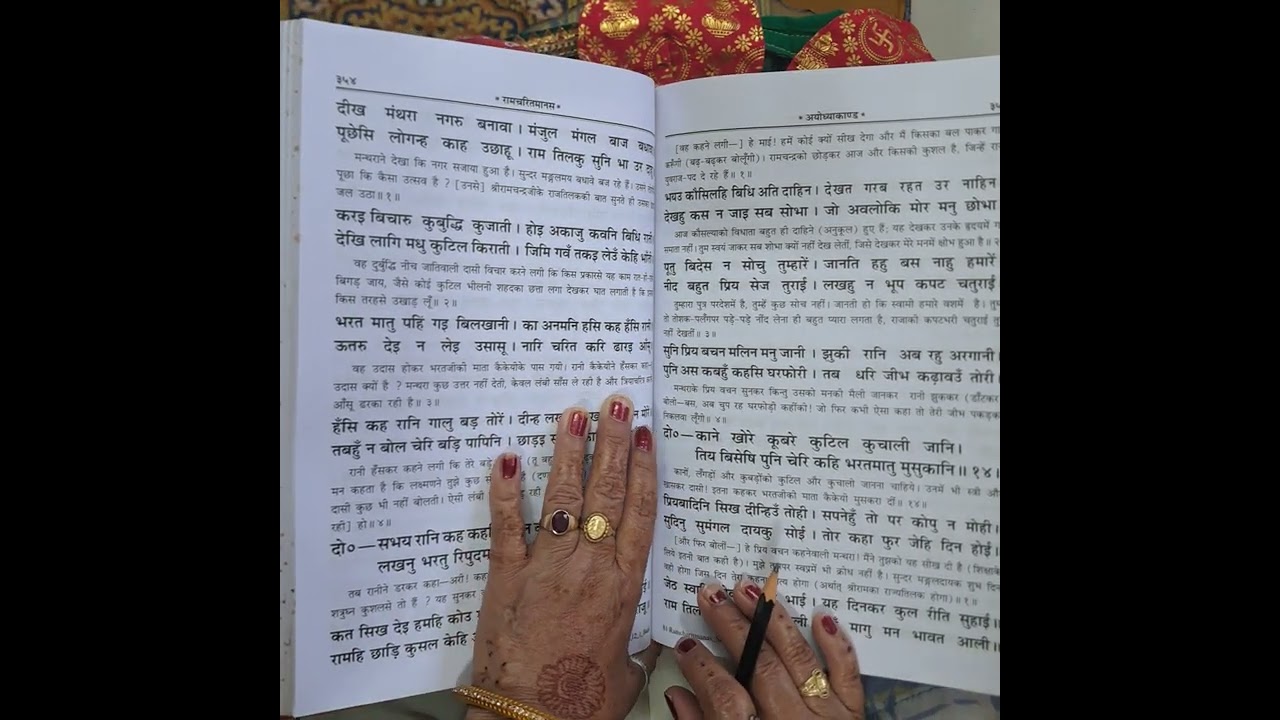 ३५४
* रामचरितमानस *
दीख मंथरा नगरु बनावा। मंजुल मंगल बाज
पूछेसि लोगन्ह काह उछाहू। राम तिलकु सुनि भा उर
मन्थराने देखा कि नगर सजाया हुआ है। सुन्दर मङ्गलमय बधावे बज रहे हैं।
पूछा कि कैसा उत्सव है ? [उनसे] श्रीरामचन्द्रजीके राजतिलककी बात सुनते ही उसका
जल उठा॥ १॥
करइ बिचारु कुबुद्धि कुजाती। होइ अकाजु कवनि बिधि
देखि लागि मधु कुटिल किराती। जिमि गवँ तकइ लेउँ केहि
वह दुर्बुद्धि नीच जातिवाली दासी विचार करने लगी कि किस प्रकारसे यह काम
बिगड़ जाय, जैसे कोई कुटिल भीलनी शहदका छत्ता लगा देखकर घात लगाती है कि
किस तरहसे उखाड़ लूँ॥ २॥
भरत मातु पहिं गइ बिलखानी। का अनमनि हसि कह हँसि रानी
ऊतरु देइ न लेइ उसासू। नारि चरित करि ढारइ आँसू
वह उदास होकर भरतजीकी माता कैकेयीके पास गयी। रानी कैकेयीने हँसकर
उदास क्यों है ? मन्थरा कुछ उत्तर नहीं देती, केवल लंबी साँस ले रही है और त्रियाचरित्र
आँसू ढरका रही है॥ ३॥
हँसि कह रानि गालु बड़ तोरें। दीन्ह
तबहुँ न बोल चेरि बड़ि पापिनि। छाड़इ
रानी हँसकर कहने लगी कि तेरे बड़े
मन कहता है कि लक्ष्मणने तुझे कुछ
दासी कुछ भी नहीं बोलती। ऐसी लंबी
रही] हो॥ ४॥
दो०—सभय रानि कह
लखनु भरतु रिपुदम
तब रानीने डरकर कहा—अरी!
शत्रुघ्न कुशलसे तो हैं ? यह सुनकर
कत सिख देइ हमहि कोउ
रामहि छाड़ि कुसल केहि
* अयोध्याकाण्ड *
[वह कहने लगी—] हे माई! हमें कोई क्यों सीख देगा और मैं किसका बल पाकर
करूँगी (बढ़-बढ़कर बोलूँगी)। रामचन्द्रको छोड़कर आज और किसकी कुशल है, जिन्हें
युवराज-पद दे रहे हैं॥ १॥
भयउ कौसिलहि बिधि अति दाहिन। देखत गरब रहत उर नाहिन
देखहु कस न जाइ सब सोभा। जो अवलोकि मोर मनु छोभा
आज कौसल्याको विधाता बहुत ही दाहिने (अनुकूल) हुए हैं; यह देखकर उनके हृदयमें
समाता नहीं। तुम स्वयं जाकर सब शोभा क्यों नहीं देख लेतीं, जिसे देखकर मेरे मनमें क्षोभ हुआ है॥
पूतु बिदेस न सोचु तुम्हारें। जानति हहु बस नाहु हमारें
नीद बहुत प्रिय सेज तुराई। लखहु न भूप कपट चतुराई
तुम्हारा पुत्र परदेशमें है, तुम्हें कुछ सोच नहीं। जानती हो कि स्वामी हमारे वशमें है।
तो तोशक-पलँगपर पड़े-पड़े नींद लेना ही बहुत प्यारा लगता है, राजाकी कपटभरी चतुराई
नहीं देखतीं॥ ३॥
सुनि प्रिय बचन मलिन मनु जानी। झुकी रानि अब रहु अरगानी
पुनि अस कबहुँ कहसि घरफोरी। तब धरि जीभ कढ़ावउँ तोरी
मन्थराके प्रिय वचन सुनकर किन्तु उसको मनकी मैली जानकर रानी झुककर (डाँटकर
बोली—बस, अब चुप रह घरफोड़ी कहींकी! जो फिर कभी ऐसा कहा तो तेरी जीभ पकड़कर
निकलवा लूँगी॥ ४॥
दो०—काने खोरे कूबरे कुटिल कुचाली जानि।
तिय बिसेषि पुनि चेरि कहि भरतमातु मुसुकानि॥ १४॥
कानों, लँगड़ों और कुबड़ोंको कुटिल और कुचाली जानना चाहिये। उनमें भी स्त्री और
खासकर दासी! इतना कहकर भरतजीकी माता कैकेयी मुसकरा दीं॥ १४॥
प्रियबादिनि सिख दीन्हिउँ तोही। सपनेहुँ तो पर कोपु न मोही।
सुदिनु सुमंगल दायकु सोई। तोर कहा फुर जेहि दिन होई।
[और फिर बोलीं—] हे प्रिय वचन कहनेवाली मन्थरा! मैंने तुझको यह सीख दी है (शिक्षाके
लिये इतनी बात कही है)। मुझे पर स्वप्नमें भी क्रोध नहीं है। सुन्दर मङ्गलदायक शुभ दिन
वही होगा जिस दिन तेरा होगा (अर्थात् श्रीरामका राज्यतिलक होगा)॥ १॥
जेठ भाई। यह दिनकर कुल रीति सुहाई॥
राम मागु मन भावत आली॥